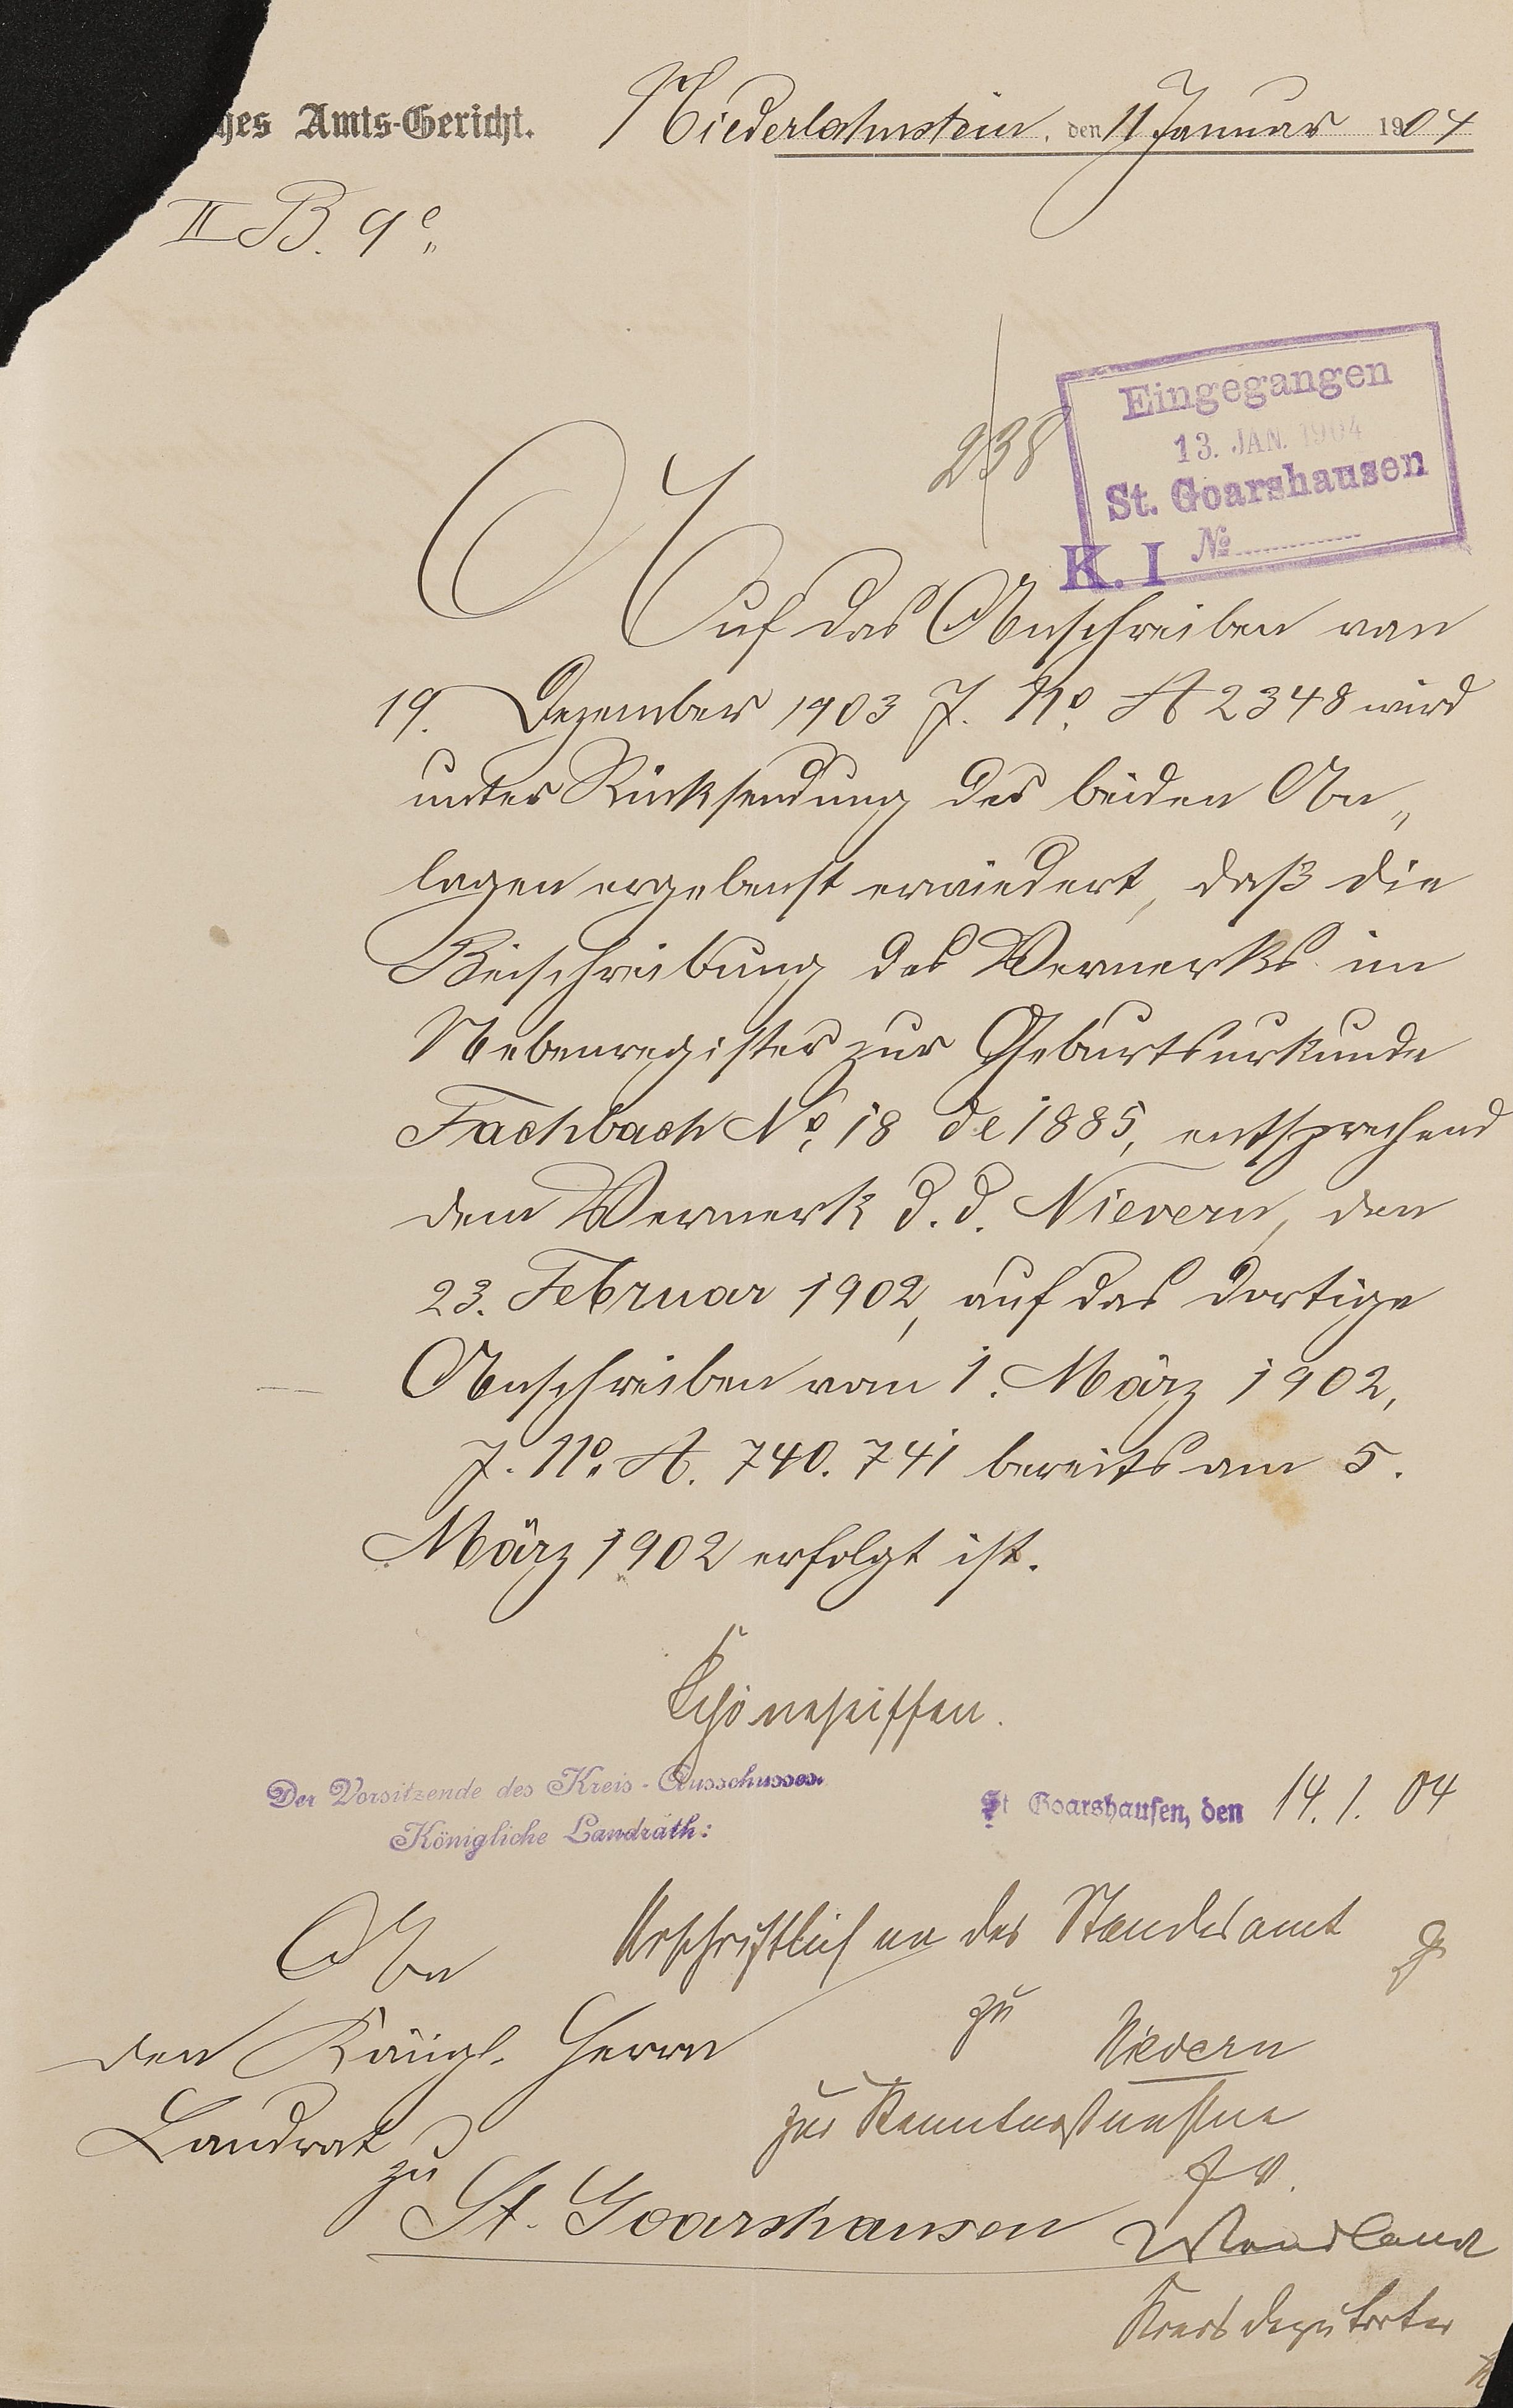 hes Amts-Gericht. Niederlahnstein, den 11 Januar 1904
II B. 9e
238
Eingegangen
13. JAN. 1904
St. Goarshausen
No
K. I
Auf das Anschreiben vom
19. Dezember 1903 J. No. A 2348 wird
unter Rücksendung der beiden An„
lagen ergebenst erwiedert, daß die
Beischreibung des Vermerks im
Nebenregister zur Geburtsurkunde
Fachbach No. 18 de 1885, entsprechend
dem Vermerk d. d. Nievern, den
23. Februar 1902, auf das dortige
Anschreiben vom 1. März 1902,
J. No. A. 740. 741 bereits am 5.
März 1902 erfolgt ist.
Schöneseiffen.
Der Vorsitzende des Kreis-Ausschusses.
Königliche Landrath:
St Goarshausen, den 14. 1. 04
Urschriftlich an das Standesamt
zu Nievern
zur Kenntnißnahme
J V.
Wendland
Kreisdeputirter
An
den Königl. Herrn
Landrat
zu
St. Goarshausen